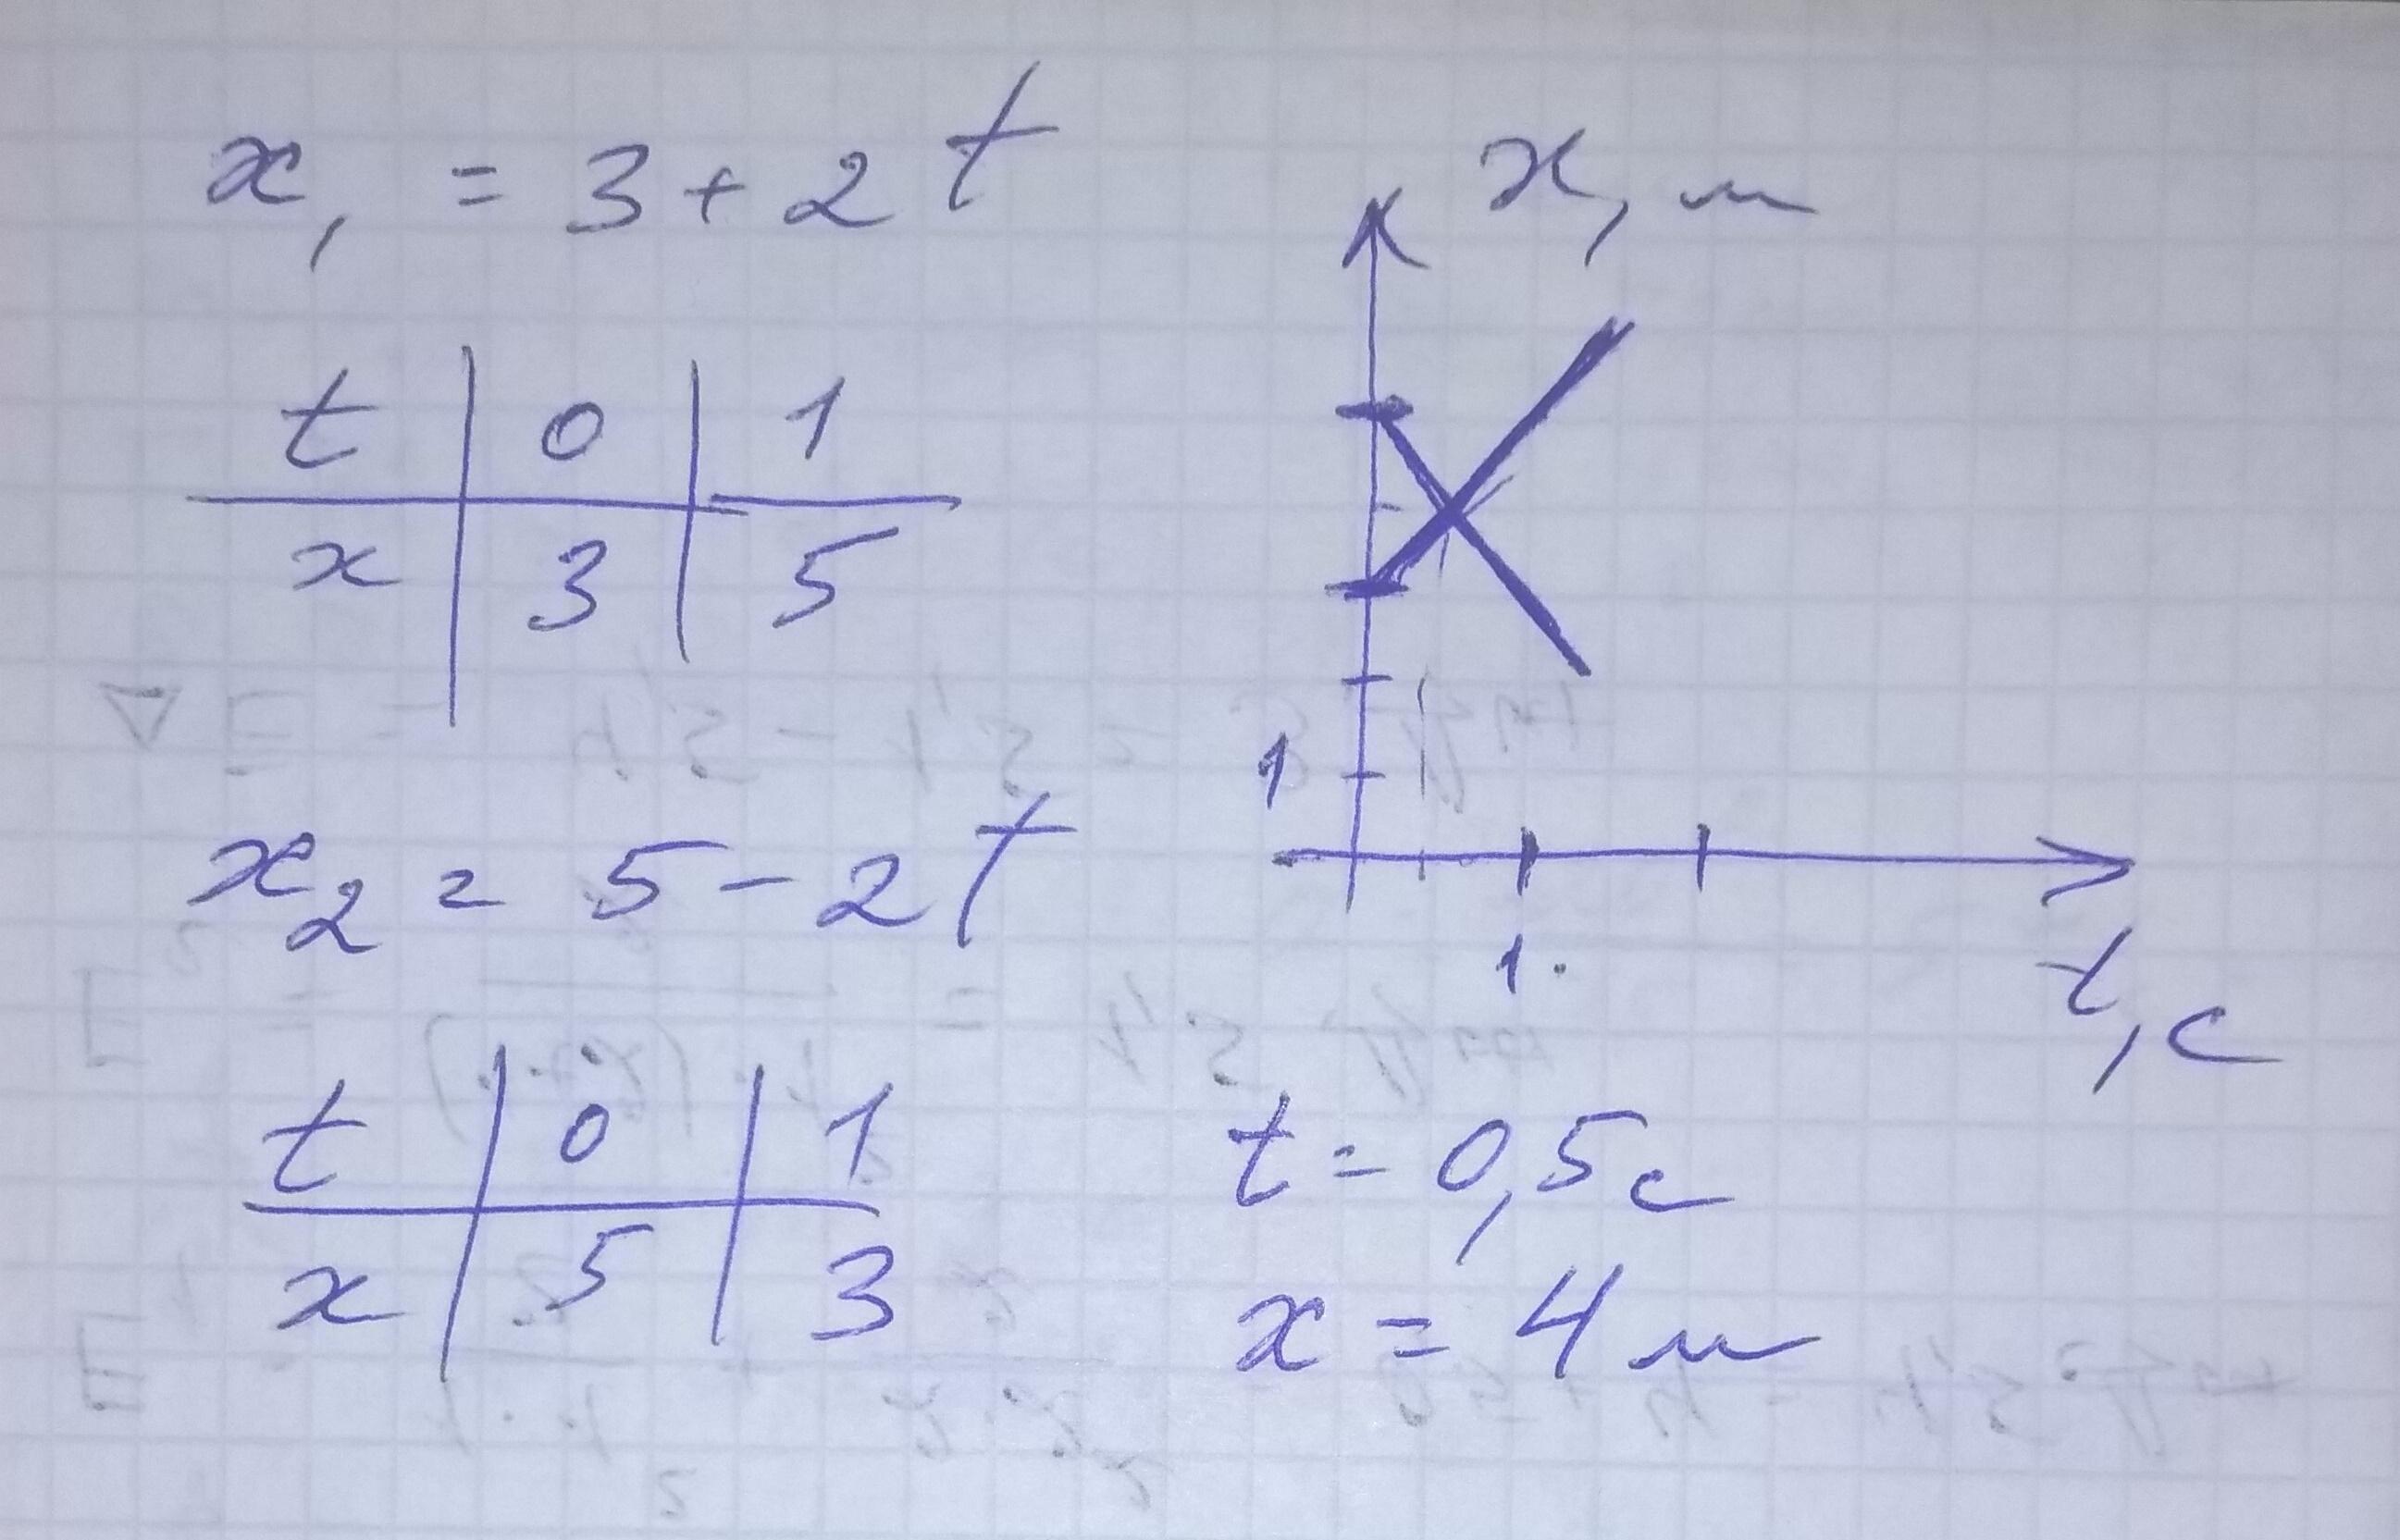 x₁ = 3 + 2t
t 0 1
x 3 5
x₂ = 5 - 2t
t 0 1
x 5 3
x, м
1
1
t, с
t = 0,5 с
x = 4 м